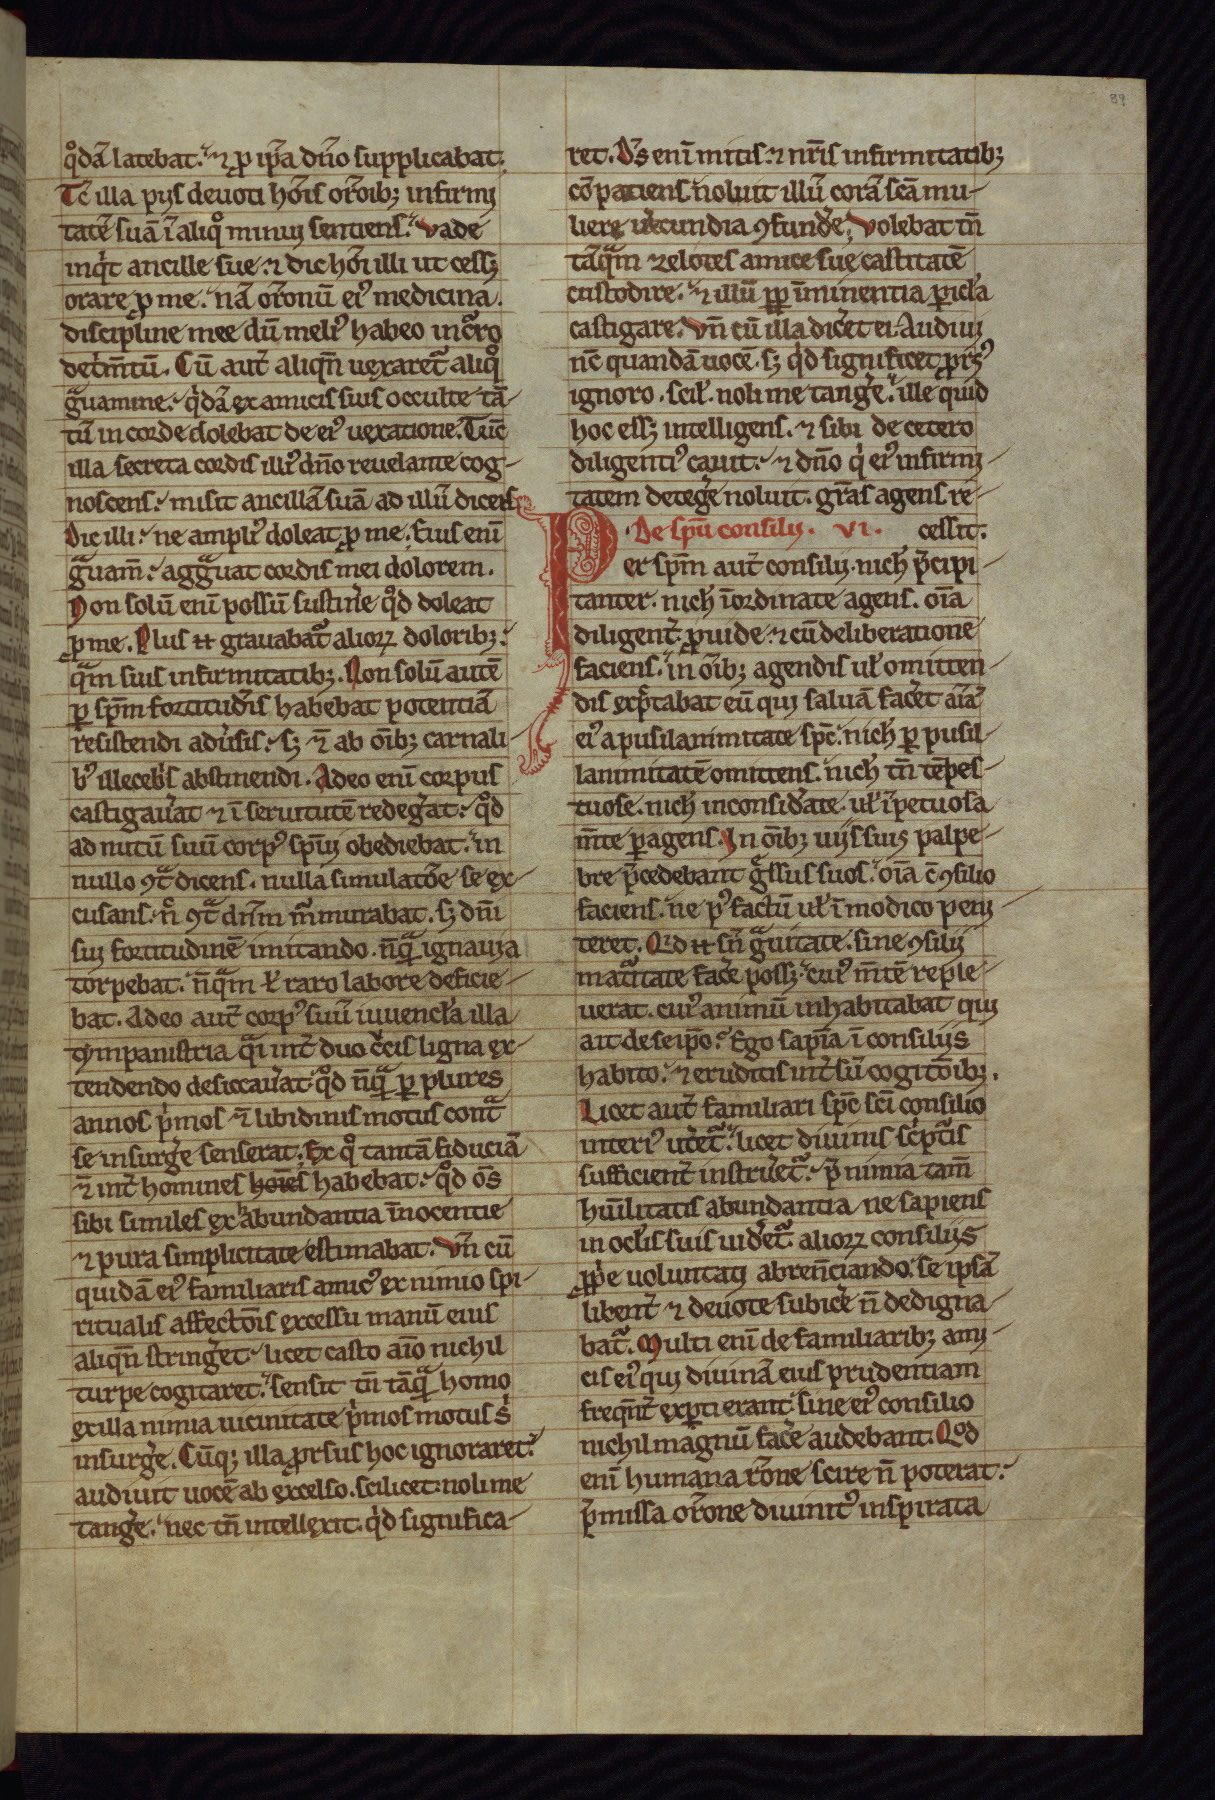 89
qͦdā latebat. ⁊ ꝓ ip̄a dn̄o supplicabat.
Tc̄ illa pijs deuoti hōis or̄oib; infirmi
tatē suā ī aliqͦ minui sentiens. Vade
inqͥt ancille sue. ⁊ dic hōi illi ut cess;
orare ꝓ me. nā or̄onū eiꝰ medicina.
discipline mee dū meliꝰ habeo incͣro
detͥm̄tū. Cū aut̄ aliqn̄ uexaretᷣ aliqͦ
gͣuamine. qͥdā ex amicis suis occulte tā-
tū in corde dolebat de eiꝰ uexatione. Tūc
illa secreta cordis illiꝰ dn̄o reuelante cog-
noscens. misit ancillā suā ad illū dicens
Dic illi. ne ampliꝰ doleat ꝓ me. Eius enī
gͣuam̄. aggͣuat cordis mei dolorem.
Non solū enī possū sustin̄e qͦd doleat
ꝓ me. Plus ⁊t grauabatᷣ alioꝝ doloribꝫ.
qͣm suis infirmitatibꝫ. Non solū autē
ꝑ spm̄ fortitud̄is habebat potentiā
resistendi adūsis. sꝫ ⁊̄ ab oībꝫ carnali
bꝰ illecebͥs abstinendi. Adeo enī corpus
castigau̓at ⁊ ī seruitutē redeg̓at. qͦd
ad nutū suū corpꝰ spiͥui obediebat. in
nullo ꝯtͣdicens. nulla simulatōe se ex-
cusans. n̄ ꝯtͣ dn̄m m̓murabat. sꝫ dn̄i
sui fortitudinē imitando. nūqͣ ignauia
torpebat. nūqͣm ł raro labore deficie-
bat. Adeo aut̄ corpꝰ suū iuuenc̄la illa
tympanistria qͣi int̓ duo cͥcis ligna ex-
tendendo desiccau̓at qͦd nūqͣ ꝑ plures
annos pͥmos ⁊̄ libidinis motus contͣ
se insurg̓e senserat. Ex qͦ tantā fiduciā
⁊̄ int̓ homines hoīes habebat. qͦd oēs
sibi similes ex habundantia īnocentie
⁊ pura simplicitate estimabat. Vn̄ cū
quidā eiꝰ familiaris amicꝰ ex nimio spi-
ritualis affectōis excessu manū eius
aliqn̄ string̓et. licet casto aīo nichil
turpe cogitaret. sensit tn̄ tāqͣ homo
ex illa nimia uicinitate pͥmos motus sͥ
insurg̓e. Cūqꝫ illa ꝓrsus hoc ignoraret.
audiuit uocē ab excelso. scilicet. noli me
tang̓e. nec tn̄ intellexit. qͥd significa-
ret. Ds̄ enī mitis. ⁊ nr̄is infirmitatibꝫ
cōpatiens noluit illū corā scā mu-
liere u̓ecundia ꝯfund̓e. Volebat tn̄
tāqͣm zelotes amice sue castitatē
custodire. ⁊ illū ꝓpͭ īminentia ꝑicl̄a
castigare. Vn̄ cū illa dic̓et ei. Audiui
nūc quandā uocē. sꝫ qͥd significet ꝓrsꝰ
ignoro. scił. noli me tang̓e. ille quid
hoc essꝫ intelligens. ⁊ sibi de cetero
diligentiꝰ cauit. ⁊ dn̄o qͥ eiꝰ infirmi-
tatem deteg̓e noluit. gr̄as agens re-
cessit.
De spū consilij. VI.
Per spm̄ aut̄ consilij. nich̄ p̄cipi-
tanter. nich̄ īordinate agens. oīa
diligent̓. ꝓuide. ⁊ cū deliberatione
faciens. in oībꝫ agendis uł omitten-
dis exp̄ctabat eū qui saluā fac̓et aīā
eiꝰ a pusilanimitate spc̄. nich̄ ꝑ pusil-
lanimitatē omittens. nich̄ tn̄ tēpes-
tuose. nich̄ inconsid̓ate. uł īpetuosa
m̄te ꝑagens. In oībꝫ uijs suis palpe-
bre p̄cedebant gͤssus suos. oīa cū ꝯsilio
faciens. ne pꝰ factū uł ī modico peni
teret. Qd ⁊t sn̄ gͣuitate. sine ꝯsilij
matuͥtate fac̓e possꝫ. cuiꝰ m̄tē reple-
uerat. cuiꝰ animū inhabitabat qui
ait de seip̄o. Ego sapīa ī consilijs
habito. ⁊ eruditis int̓sū cogitōibꝫ.
Licet aut̄ familiari spc̄ sc̄i consilio
interiꝰ ut̓etᷣ. licet diuinis scͥptͥis
sufficient̓ instru̓etᷣ. p̄ nimia tam̄
humilitatis abundantia ne sapiens
in ocl̄is suis uid̓etᷣ. alioꝝ consilijs
ꝓpͥe uoluntati abrenūciando. se ipsā
libent̓ ⁊ deuote subic̓e n̄ dedigna-
batᷣ. Multi enī de familiaribꝫ ami-
cis eiꝰ qui diuinā eius prudentiam
freqn̄t̓ exꝑti erant. sine eiꝰ consilio
nichil magnū fac̓e audebant. Qͦd
enī humana rōne scire n̄ poterat.
p̄missa or̄one diuinitꝰ inspirata